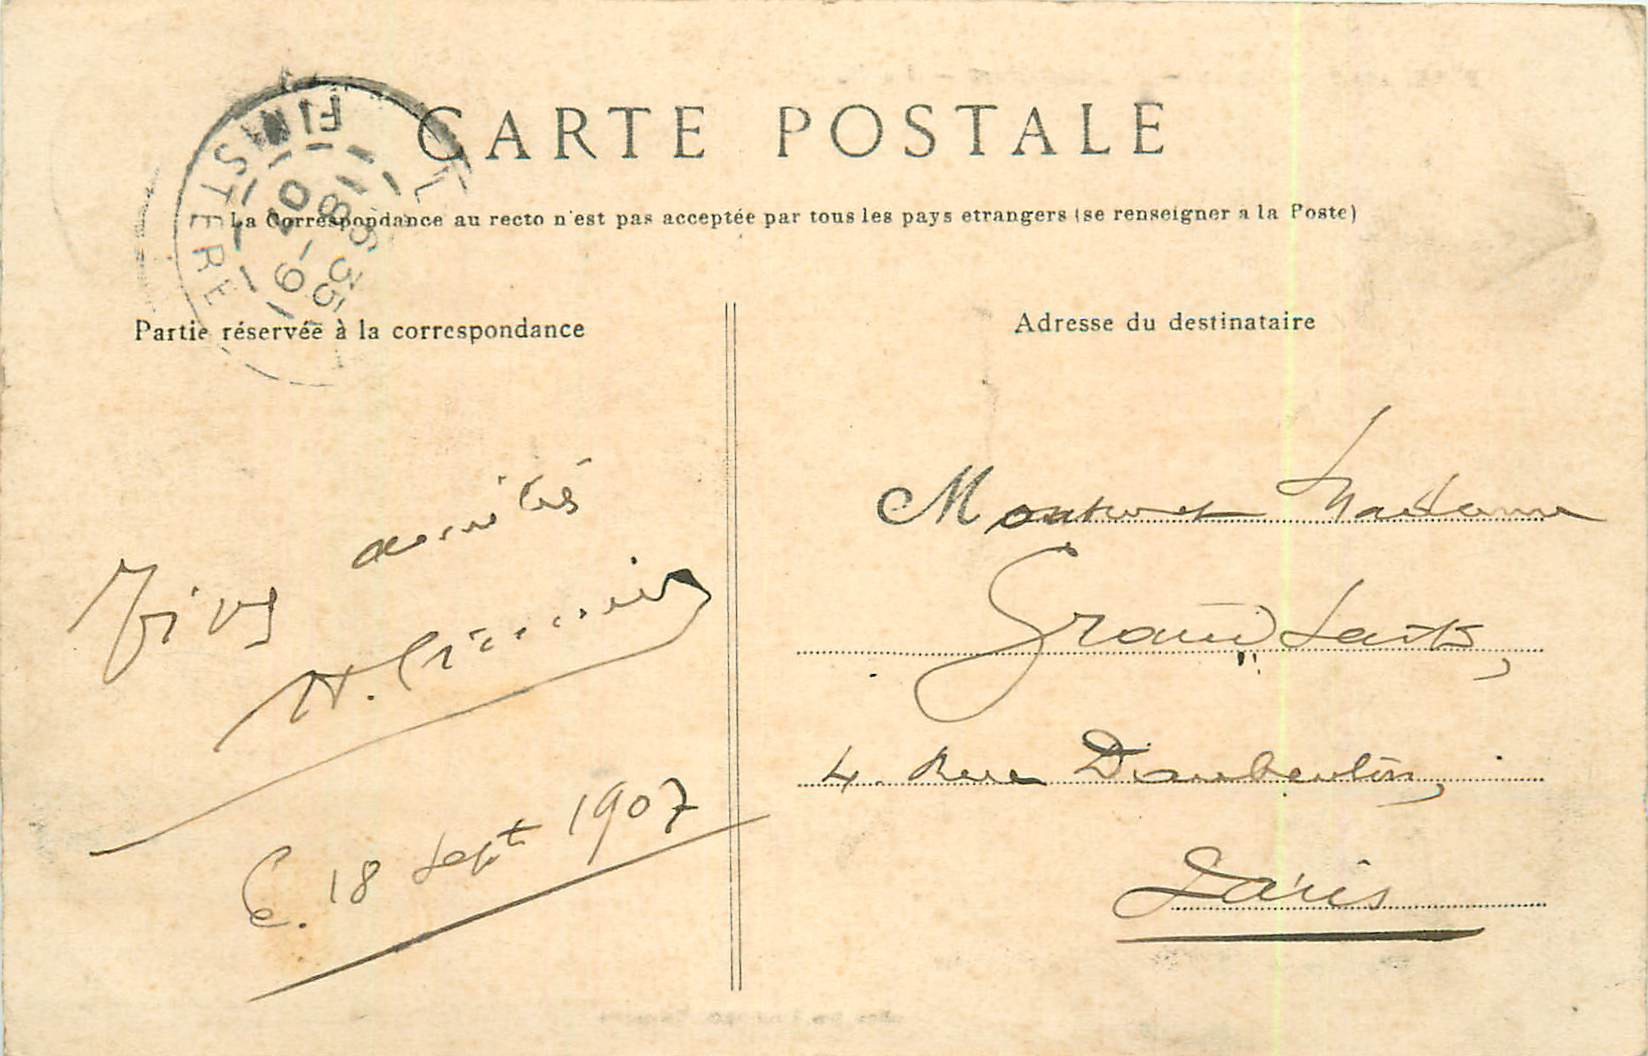 CARTE POSTALE
La Correspondance au recto n'est pas acceptée par tous les pays etrangers (se renseigner a la Poste)
FINISTERE
18 - 9
07
Partie réservée à la correspondance
Adresse du destinataire
amitiés
H.
C. 18 Sept 1907
Monsieur et Madame
4. Rue Daubenton,
Paris